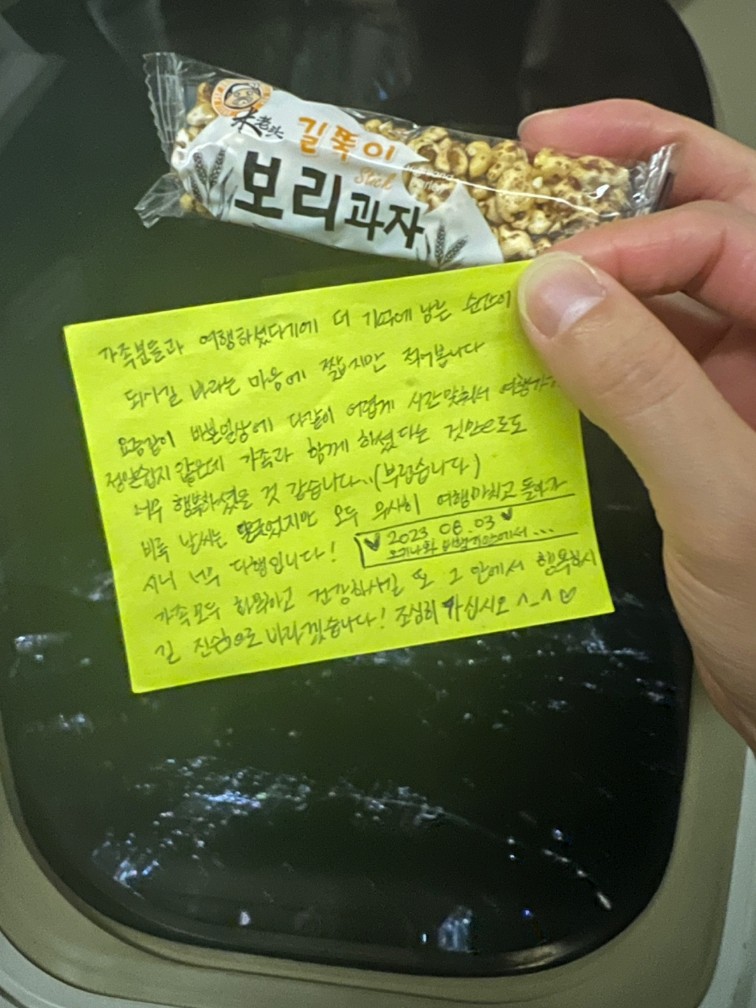 길쭉이
Stick
보리과자
가족분들과 여행하셨다기에 더 기억에 남는 순간이
되시길 바라는 마음에 짧지만 적어봅니다
요즘같이 바쁜일상에 다같이 어렵게 시간맞춰서 여행가기
정말쉽지 않은데 가족과 함께 하셨다는 것만으로도
너무 행복하셨을 것 같습니다..(부럽습니다)
비록 날씨는 궂었지만 모두 무사히 여행마치고 돌아가
시니 너무 다행입니다!
♥ 2023 08.03 ♥
오키나와 비행기안에서...
가족모두 화목하고 건강하시길 또 그 안에서 행복하시
길 진심으로 바라겠습니다! 조심히 가십시오 ^_^ ♡